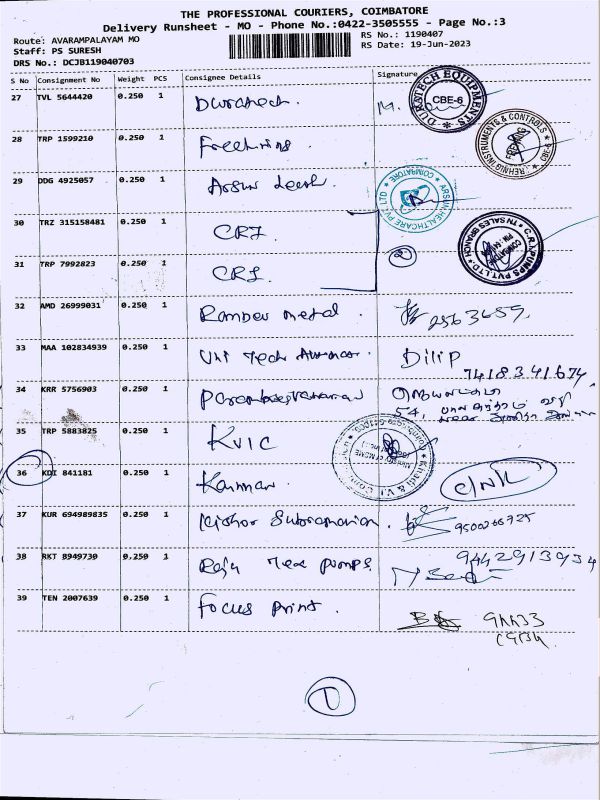 THE PROFESSIONAL COURIERS, COIMBATORE
Delivery Runsheet - MO - Phone No.:0422-3505555 - Page No.:3
Route: AVARAMPALAYAM MO
RS No.: 1190407
Staff: PS SURESH
RS Date: 19-Jun-2023
DRS No.: DCJB119040703
S No Consignment No Weight PCS Consignee Details Signature
27 TVL 5644420 0.250 1 Duratech.
DURATECH EQUIPMENTS
CBE-6
28 TRP 1599210 0.250 1
INSTRUMENTS & CONTROLS
29 DDG 4925057 0.250 1
ARSUN HEALTHCARE PVT LTD
COIMBATORE
30 TRZ 315158481 0.250 1 CRI.
31 TRP 7992823 0.250 1 CRI.
2
C.R.I. PUMPS PVT. LTD. TN SALES BRANCH
32 AMD 26999031 0.250 1 metal. 2563689.
33 MAA 102834939 0.250 1 Uni Tech Dilip
7418341674
34 KRR 5756903 0.250 1
54,
35 TRP 5883825 0.250 1 KVIC
Khadi & V.I. Com
36 KDI 841181 0.250 1 Kannan. C/NR
37 KUR 694989835 0.250 1 Kishor Subramanian. 9500266725
38 RKT 8949730 0.250 1 Raju Tex pumps. 9442913934
39 TEN 2007639 0.250 1 Focus print.
1